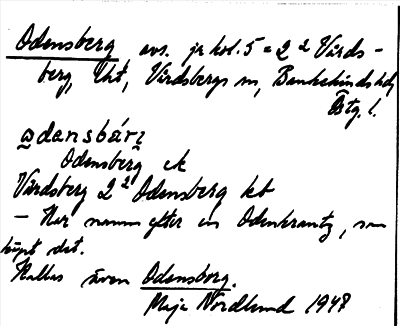 Odensberg avs. jr kol. 5 = 2² Vårds-
berg, Uht, Vårdsbergs sn, Bankekinds hd,
Östg. l.
odansbárı
Odensberg ek
Vårdsberg 2² Odensberg kb
– Har namn efter en Odenkrantz, som
köpt det.
Kallas även Odensborg.
Maja Nordlund 1947